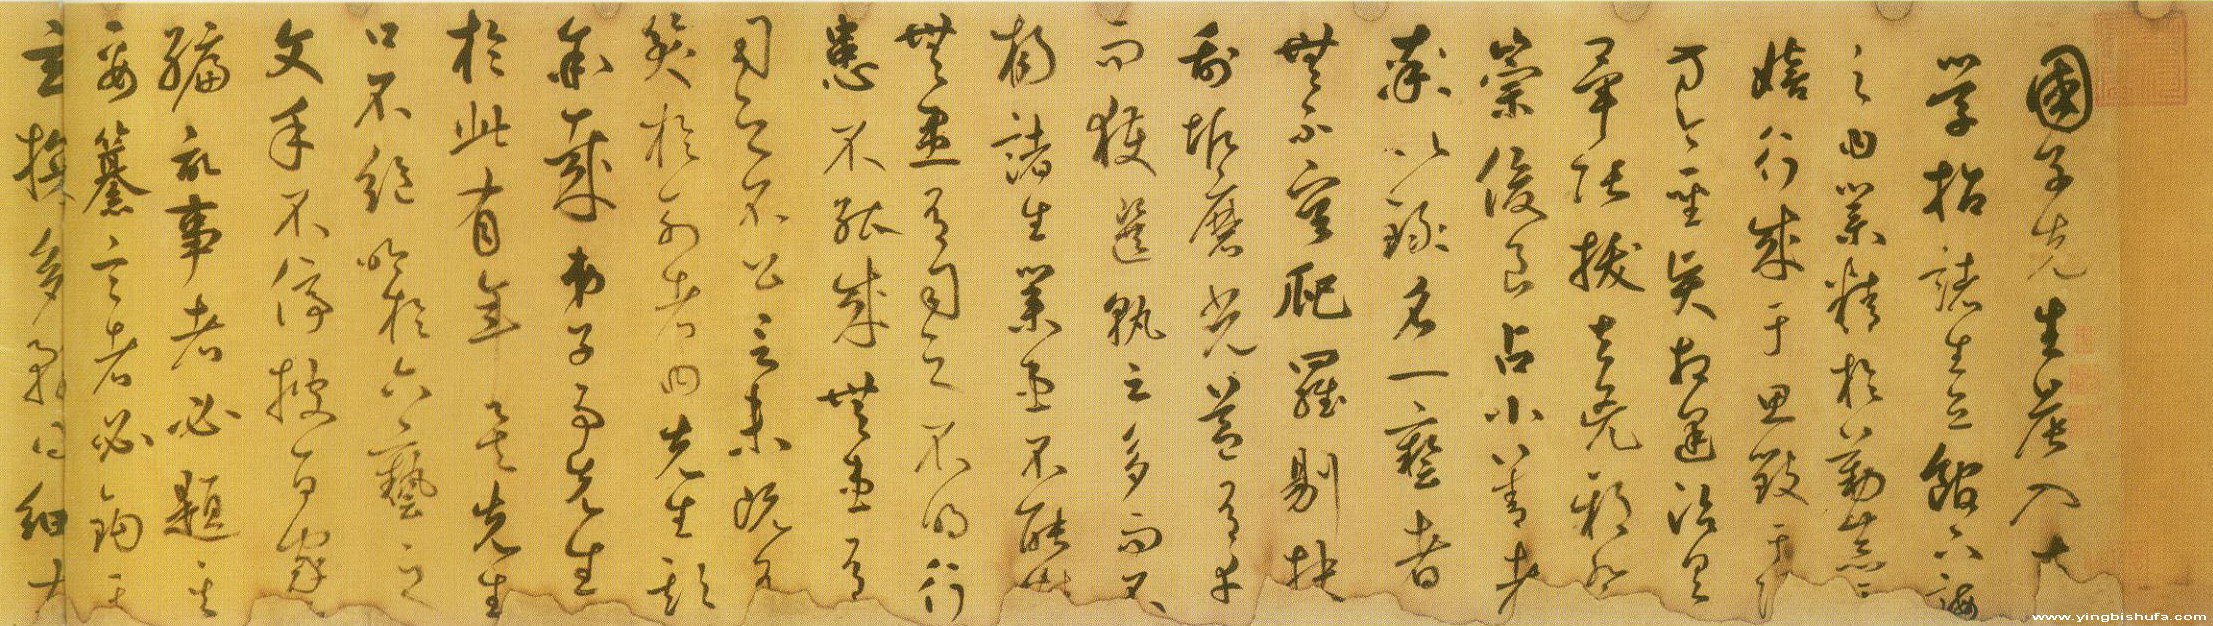 國子先生晨入太
學招諸生立館下誨
之曰業精於勤荒于
嬉行成于思毀于隨
方今聖賢相逢治具
畢張拔去兇邪登
崇俊良占小善者
率以錄名一藝者
無不容爬羅剔抉
刮垢磨光蓋有幸
而獲選孰云多而不
揚諸生業患不能精
無患有司之不明行
患不能成無患有
司之不公言未既有
笑於列者曰先生欺
余哉弟子事先生
於此有年矣先生
口不絕吟於六藝之
文手不停披百家
編記事者必題其
要纂言者必鉤其
玄貪多務得細大
www.yingbishufa.com